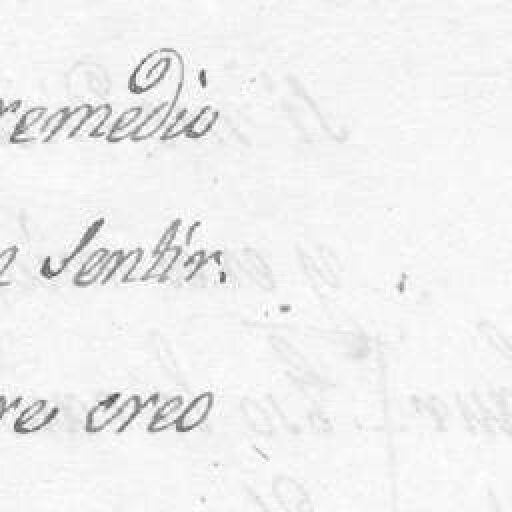 remedio
n Sentir.
re creo